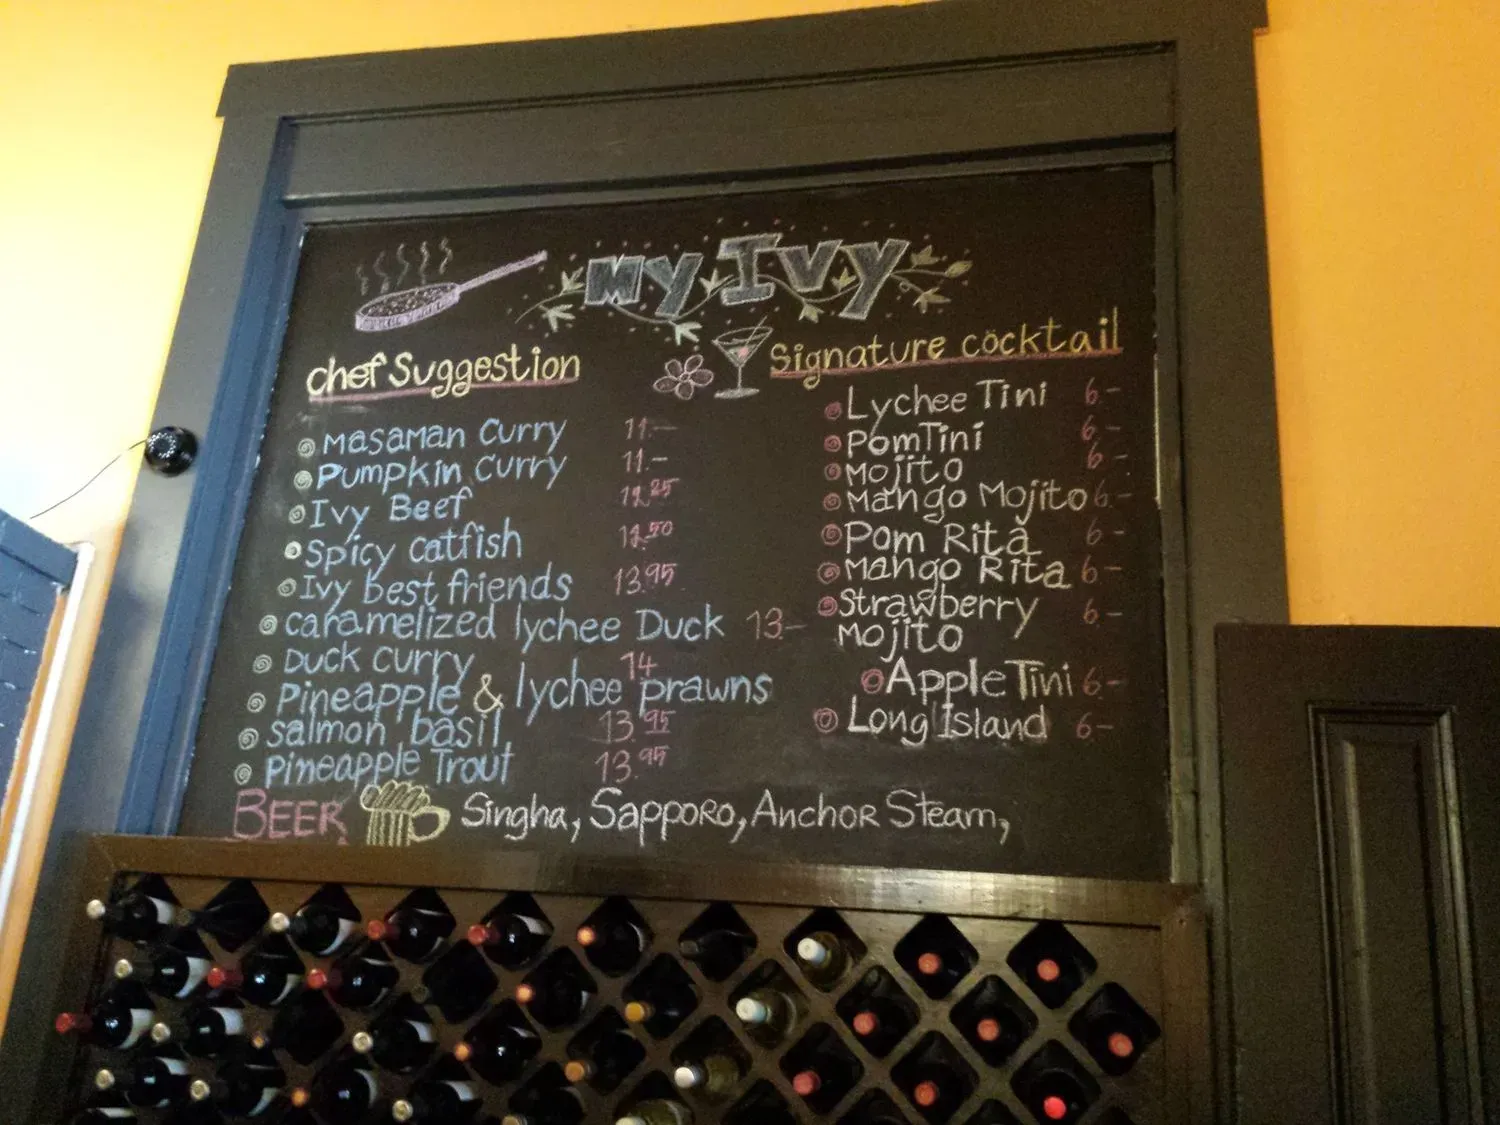 My Ivy
chef Suggestion
Masaman Curry 11.—
Pumpkin Curry 11.—
Ivy Beef 12.25
Spicy catfish 12.50
Ivy best friends 13.95
caramelized lychee Duck 13—
Duck curry 14
Pineapple & lychee prawns
salmon basil 13.95
pineapple Trout 13.95
Signature cocktail
Lychee Tini 6.-
PomTini 6.-
Mojito 6-
Mango Mojito 6.-
Pom Rita 6-
Mango Rita 6-
Strawberry 6-
Mojito
Apple Tini 6-
Long Island 6-
BEER Singha, Sapporo, Anchor Steam,